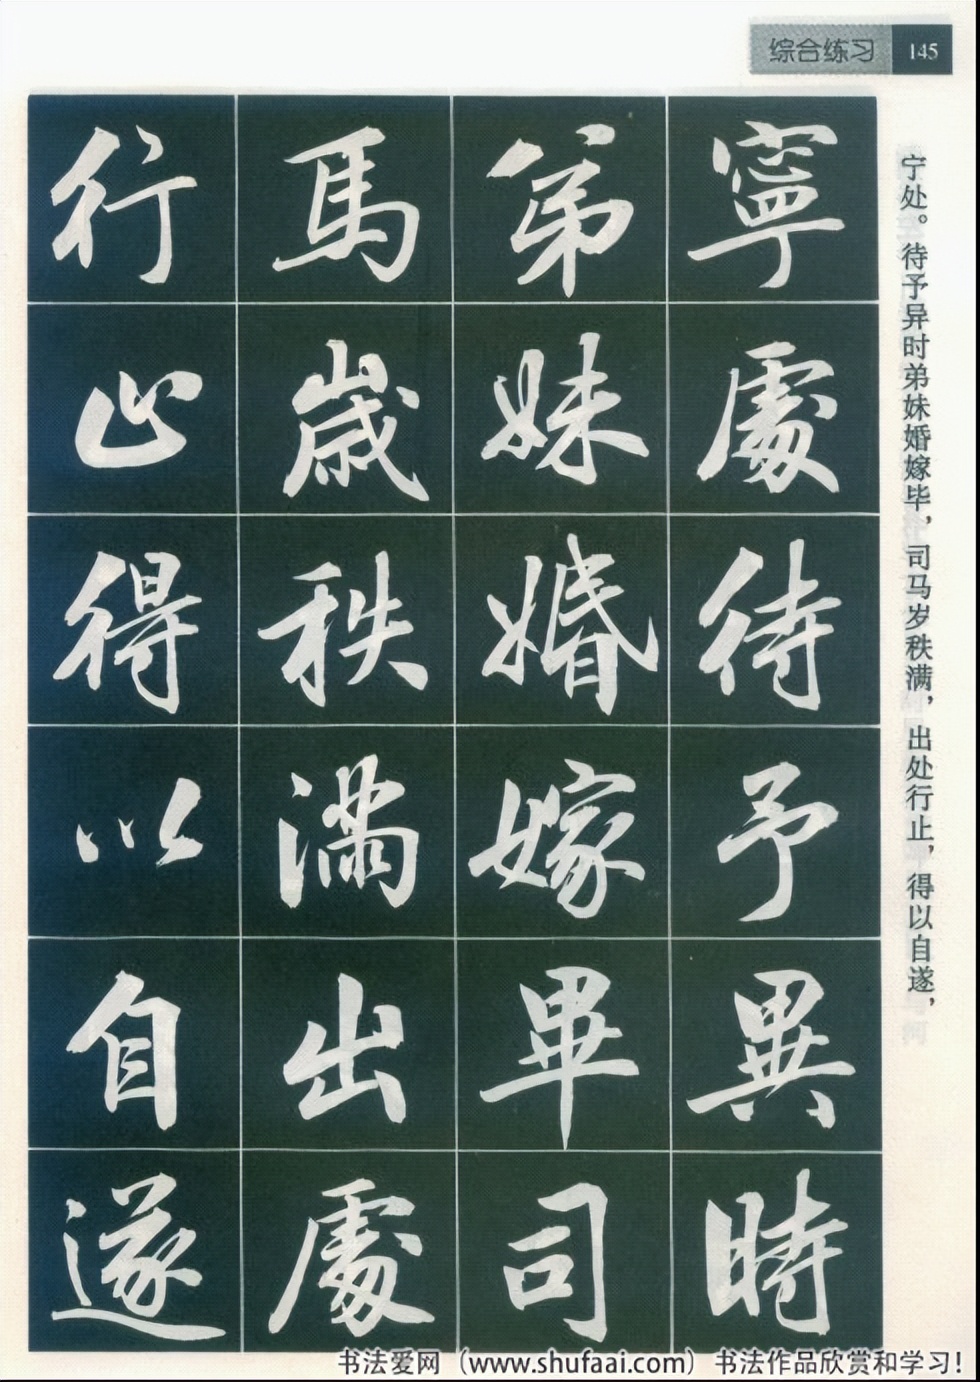 综合练习 145
宁处。待予异时弟妹婚嫁毕，司马岁秩满，出处行止，得以自遂，
寧處待予異時
弟妹婚嫁畢司
馬歲秩滿出處
行止得以自遂
书法爱网（www.shufaai.com）书法作品欣赏和学习！